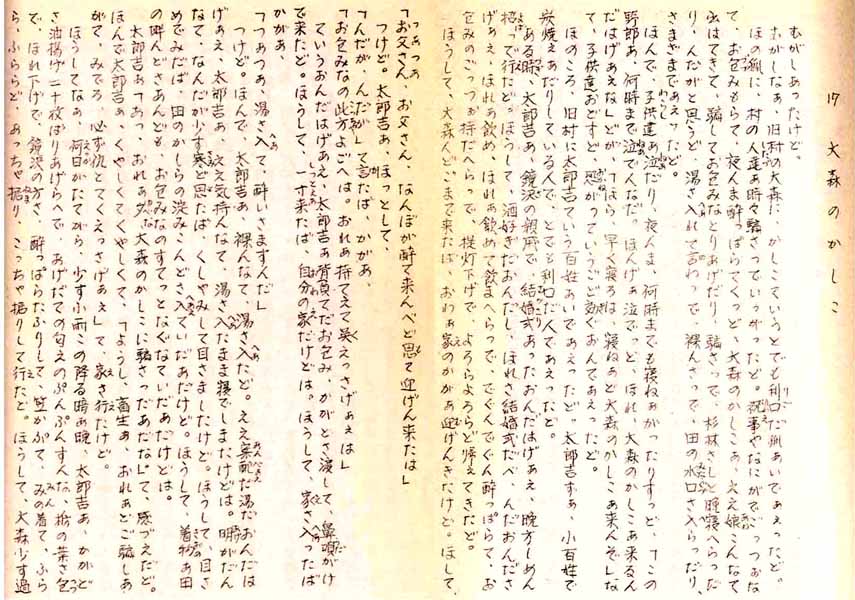 17 大森のかしこ
むがしあったけど。
むがしなぁ、旧村の大森に、かしこていうとでも利口だ狐あいであぇったど。
ほの狐に、村の人達ぁ時々騙さっでいっがったど。祝事やなにがでごっつぉな
て、お包みもらて、夜んま酔っぱらてくっど、大森のかしこぁ、ええ娘こんなて
出はてきて、騙してお包みなとりあげだり、騙さって、杉林さしと晩寝へらっだ
り、んだがと思うど、湯さ入れて言わって、裸んさって、田の水口さ入らっだり、
さまざまであぇっだど。
ほんで、子供達ぁ泣だり、夜んま、何時までも寝ねぁがったりすっど、「この
野郎あ、何時まで泣でんなだ。ほんげぁ泣でっど、ほれ、大森のかしこぁ来るん
だはげぁえなど」どが、「ほら、早く寝ろは、寝ねぁど大森のかしこぁ来んぞ」な
て、子供達おどすど、恐がっていうごど効ぐあんであぇったど。
ほのころ、旧村に太郎吉ていう百姓あいであぇったど。太郎吉すぁ、小百姓で
炭焼ぇあだりしている人で、とても利口だ人であぇったど。
ある時、太郎吉ぁ、鏡沢の親戚で、結婚式あったおんだはげぁえ、晩方しめん
招ばって行たど。ほうして、酒好ぎだおんだし、ほれさ結婚式だべ、んだおんださ
げぁえ、ほれぁ飲め、ほれぁ飲めて飲まへらって、でぐんでぐん酔っぱらて、お
包みのごっつぉ持だへらって、提灯下げで、よろらよろらど帰えてきたど。
ほうして、大森んどごまで来たば、おわぁ家のかがぁ迎げんきたけど。ほして、
「お父さん、お父さん、なんぼが酔て来んべど思て迎げん来たは」
つけど。太郎吉ぁ、ほっとして、
「んだが、んだが」て言たば、かがぁ、
「お包みなの此方よごへは。おれぁ持てえて呉えっさげぁぇは」
ていうおんだはげぁえ、太郎吉ぁ背負てだお包み、かがとさ渡して、鼻唄がけ
で来たど。ほうして、一寸来たば、自分の家だけどは。ほうして、家さ入ったば
かがぁ、
「つぁつぁ、湯さ入て、酔いさますんだ」
つけど。ほんで、太郎吉ぁ裸んなて、湯さ入たど。ええ案配だ湯だおんだは
げぁえ、太郎吉ぁええ気持んなて、湯さ入たまま寝でしまたけどは。明がだん
なて、なんだが少す寒ど思たば、くしゃみして目さましたけど。ほうして目さ
めでみだば、田のかしらの淀みこんどさ入ていだあだけど。ほうして、着物ぁ田
の畔んどさあんども、お包みなのすてっとなぐなていだあだけどは。
太郎吉ぁ「あっ、おれぁ夕べな大森のかしこに騙さっだあだな」て、感づえだど。
ほんで太郎吉ぁ、くやしくてくやしくて、「ようし、畜生ぁ、おれぁどご騙しあ
がて、みでろ、必ず仇とてくえっさげぁぇ」て、家さ行たけど。
ほうしてなぁ、何日かたてがら、少す小雨この降る暗ぁ晩、太郎吉ぁ、かがど
さ油揚げ二十枚ばりあげらへで、あげだての匂えのぷんぷんすんな、栃の葉さ包
で、ほれ下げで、鏡沢の方さ、酔っぱらたふりして、笠かぶて、みの着て、ふら
ら、ふららど、あっちゃ振り、こっちゃ振りして行たど。ほうして、大森少す過